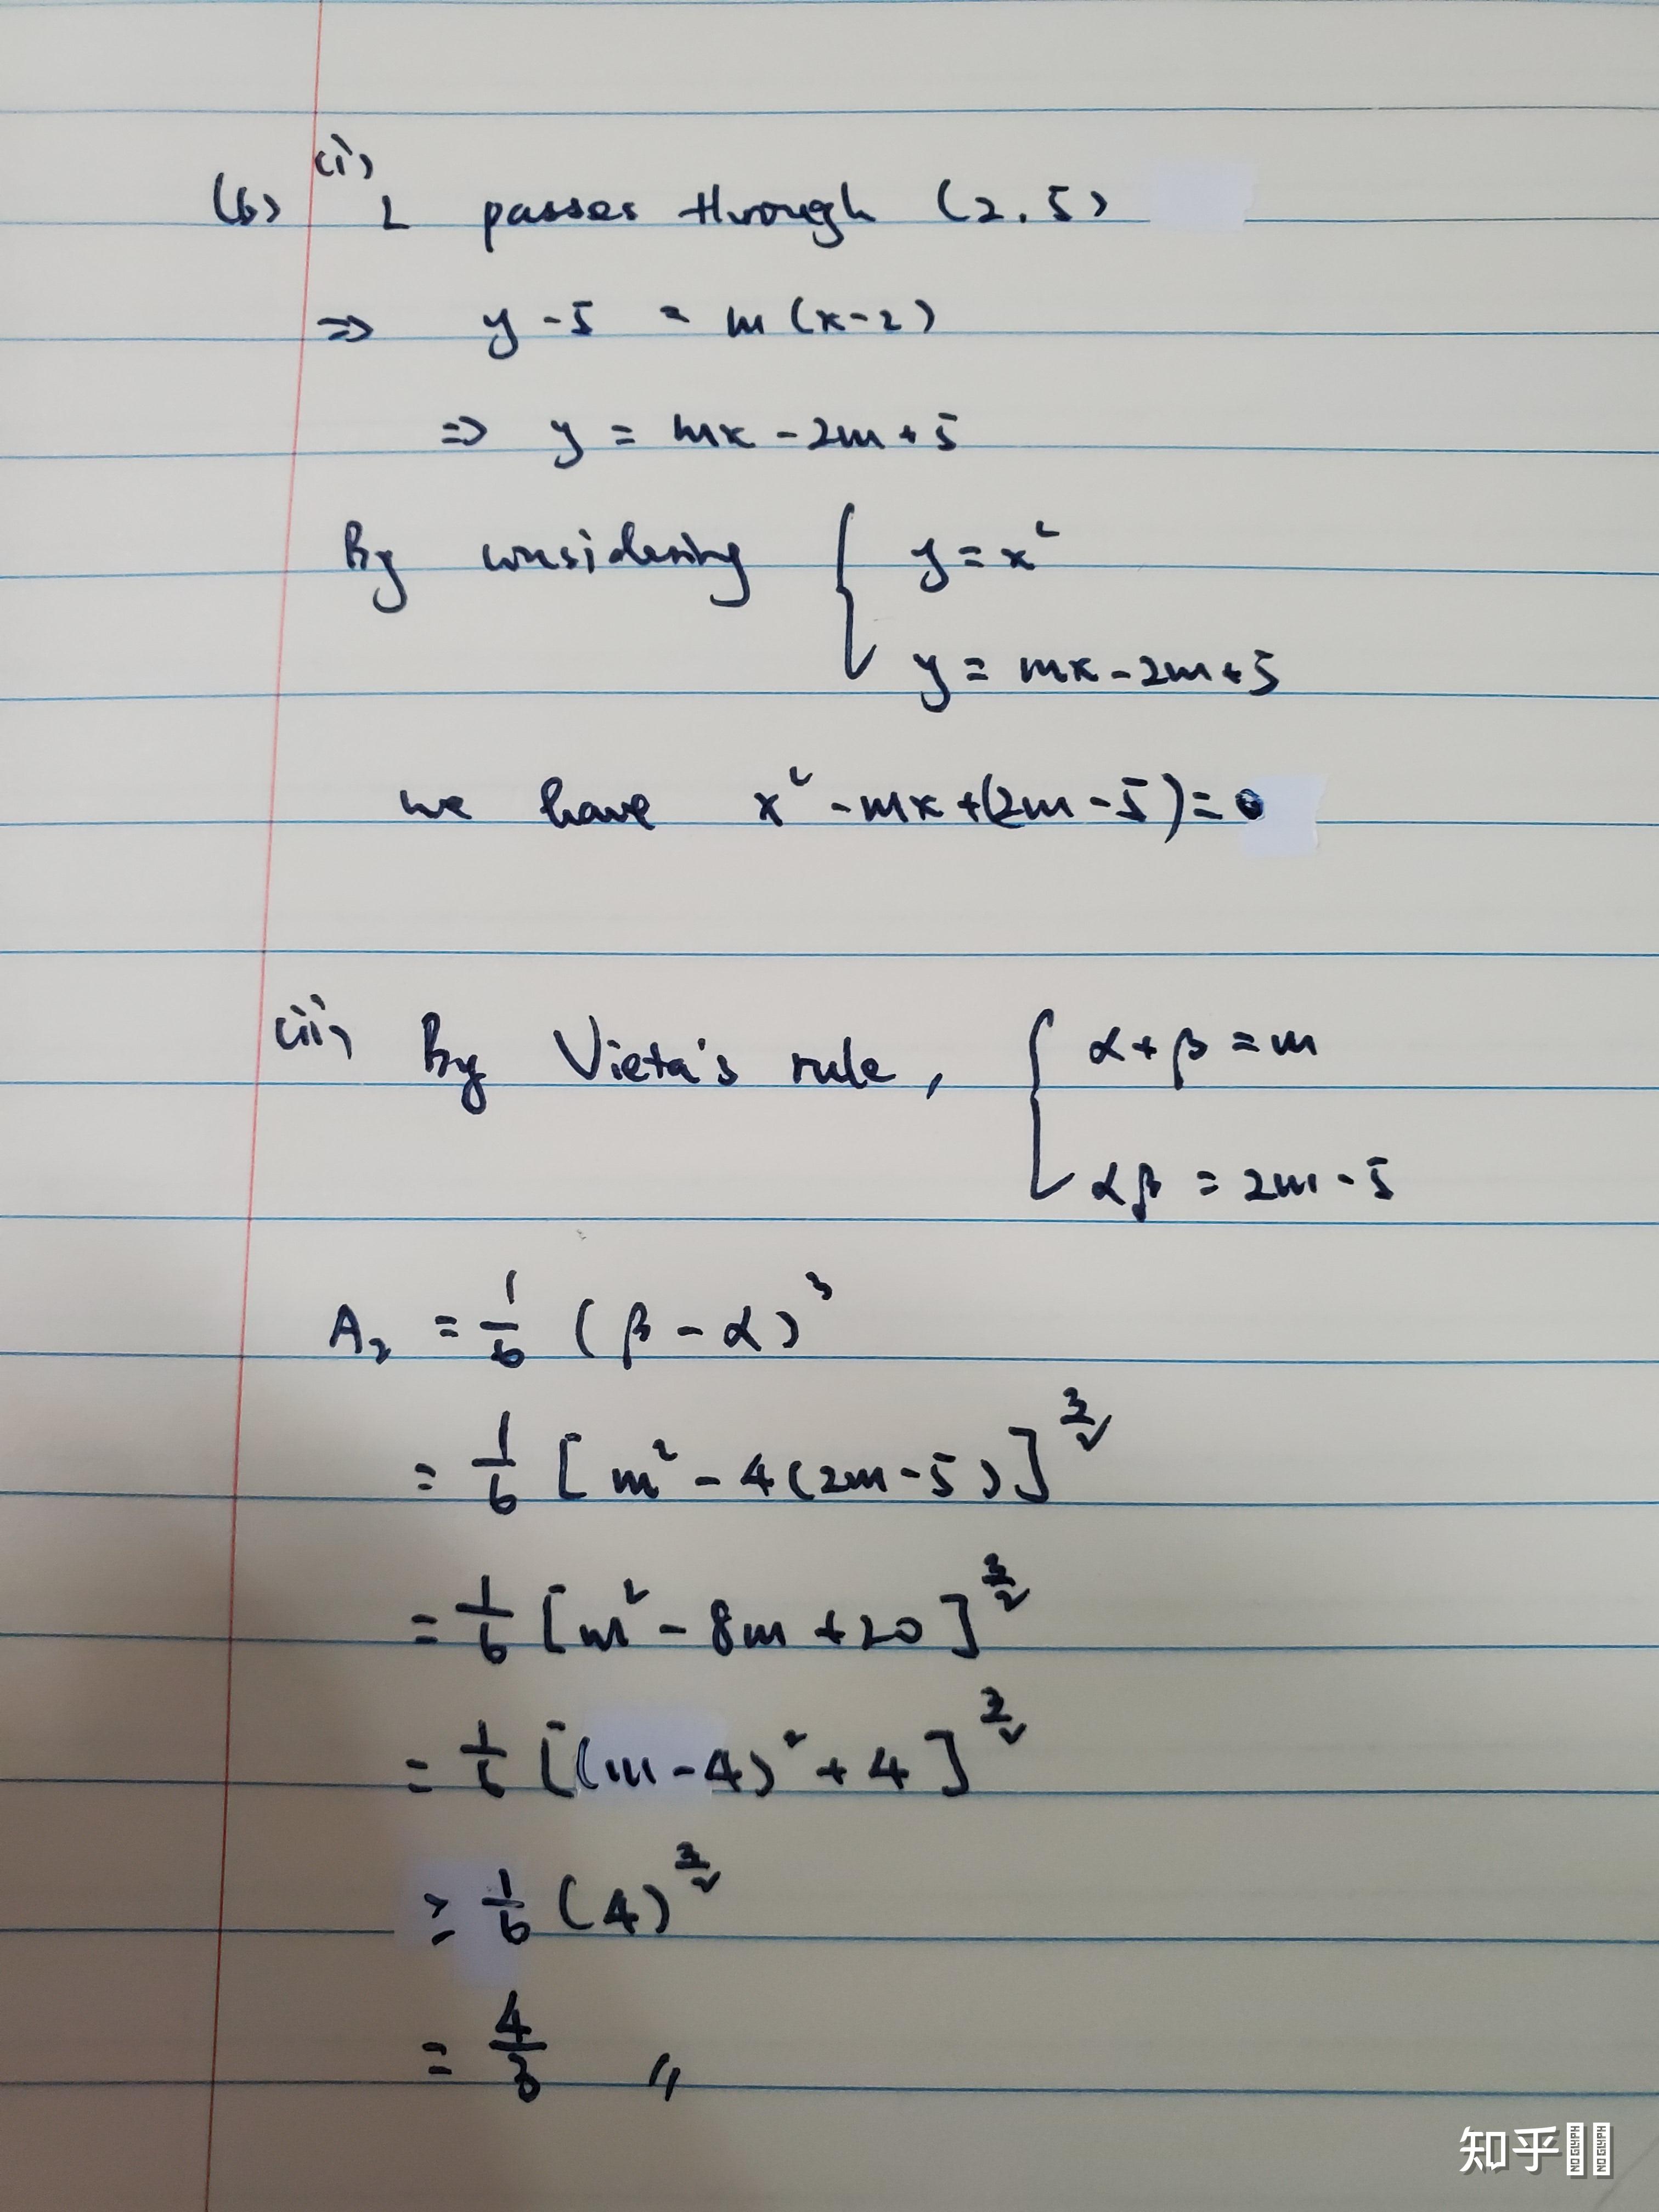 (b) (i) L passes through (2.5)
⇒ y - 5 = m(x-2)
⇒ y = mx - 2m + 5
By considering { y = x²
y = mx - 2m + 5
we have x² - mx + (2m - 5) = 0
(ii) By Vieta's rule, { α + β = m
αβ = 2m - 5
A₂ = 1/6 (β - α)³
= 1/6 [m² - 4(2m - 5)]^(3/2)
= 1/6 [m² - 8m + 20]^(3/2)
= 1/6 [(m - 4)² + 4]^(3/2)
≥ 1/6 (4)^(3/2)
= 4/3 〃
知乎